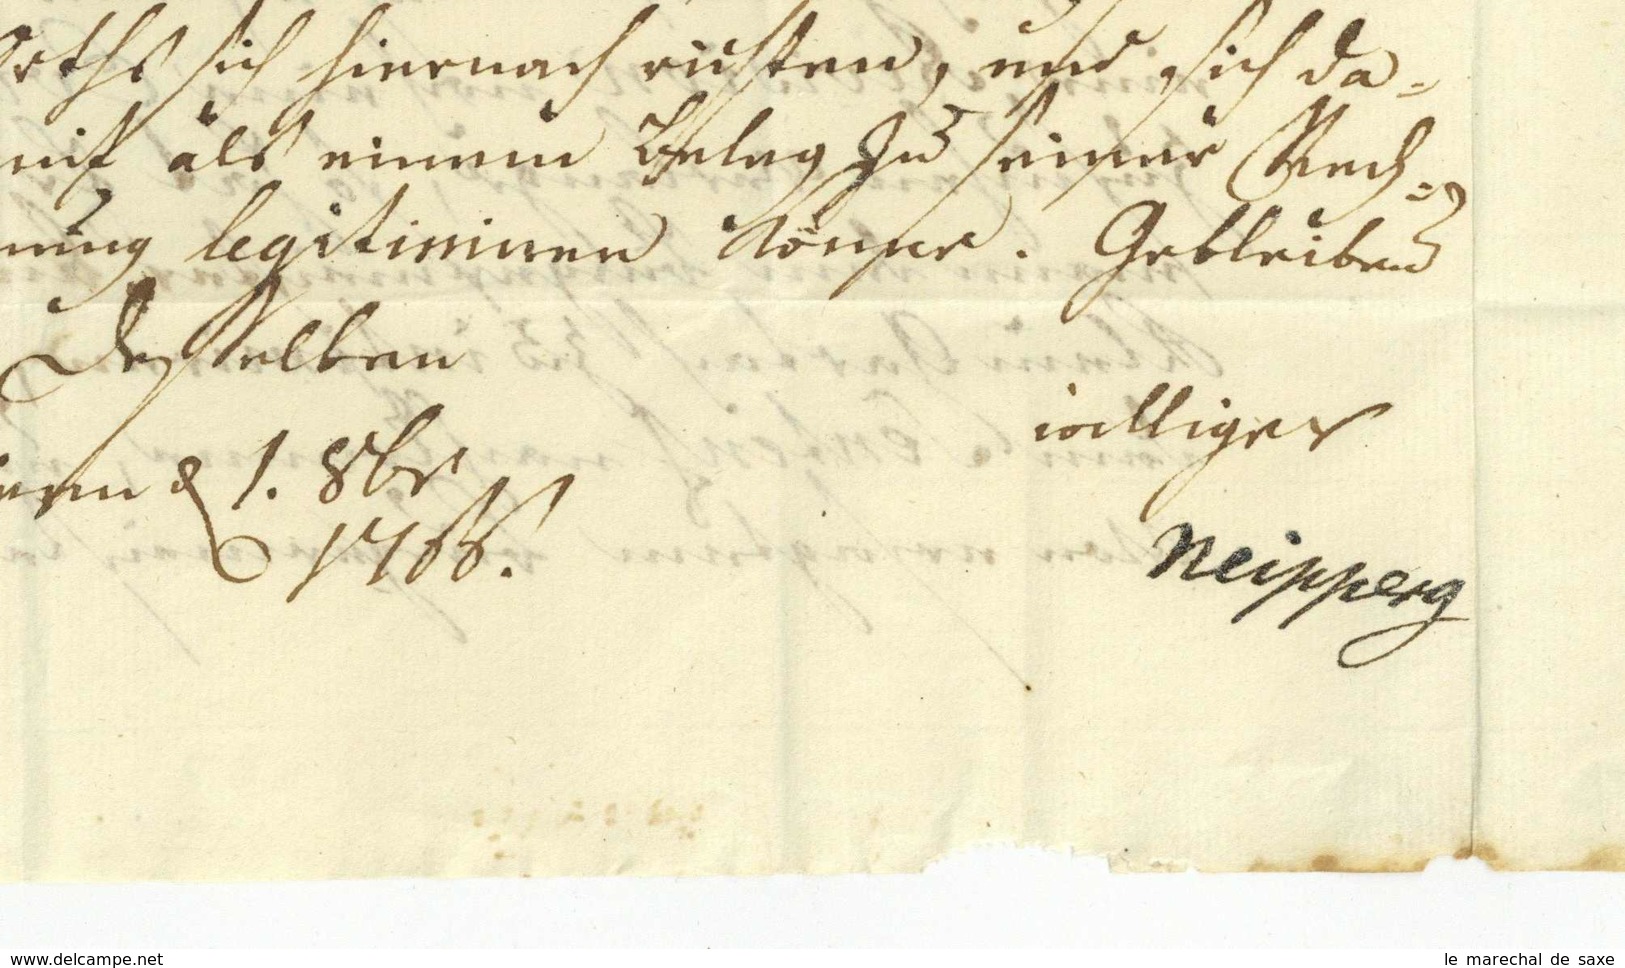 orths sich hiernach richten, und sich da-
mit als einem Beleg zu seiner Rech-
nung legitimiren könne. Gebleiben
Desselben
williger
ienn d 1. 8br
1766.
Neipperg
www.delcampe.net
le marechal de saxe